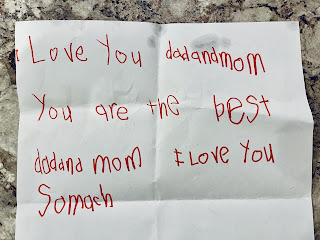 I Love You dadandmom
You are the best
dadand mom I Love You
Somach